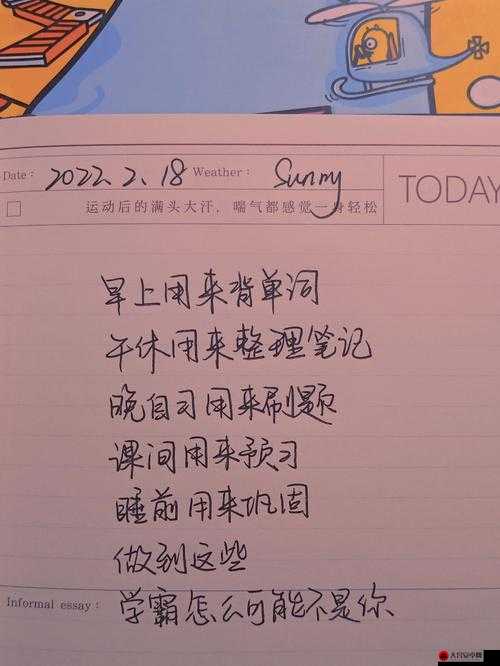 Date: 2022.2.18 Weather: Sunny
TODAY
运动后的满头大汗，喘气都感觉一身轻松
早上用来背单词
午休用来整理笔记
晚自习用来刷题
课间用来预习
睡前用来巩固
做到这些
Informal essay: 学霸怎么可能不是你